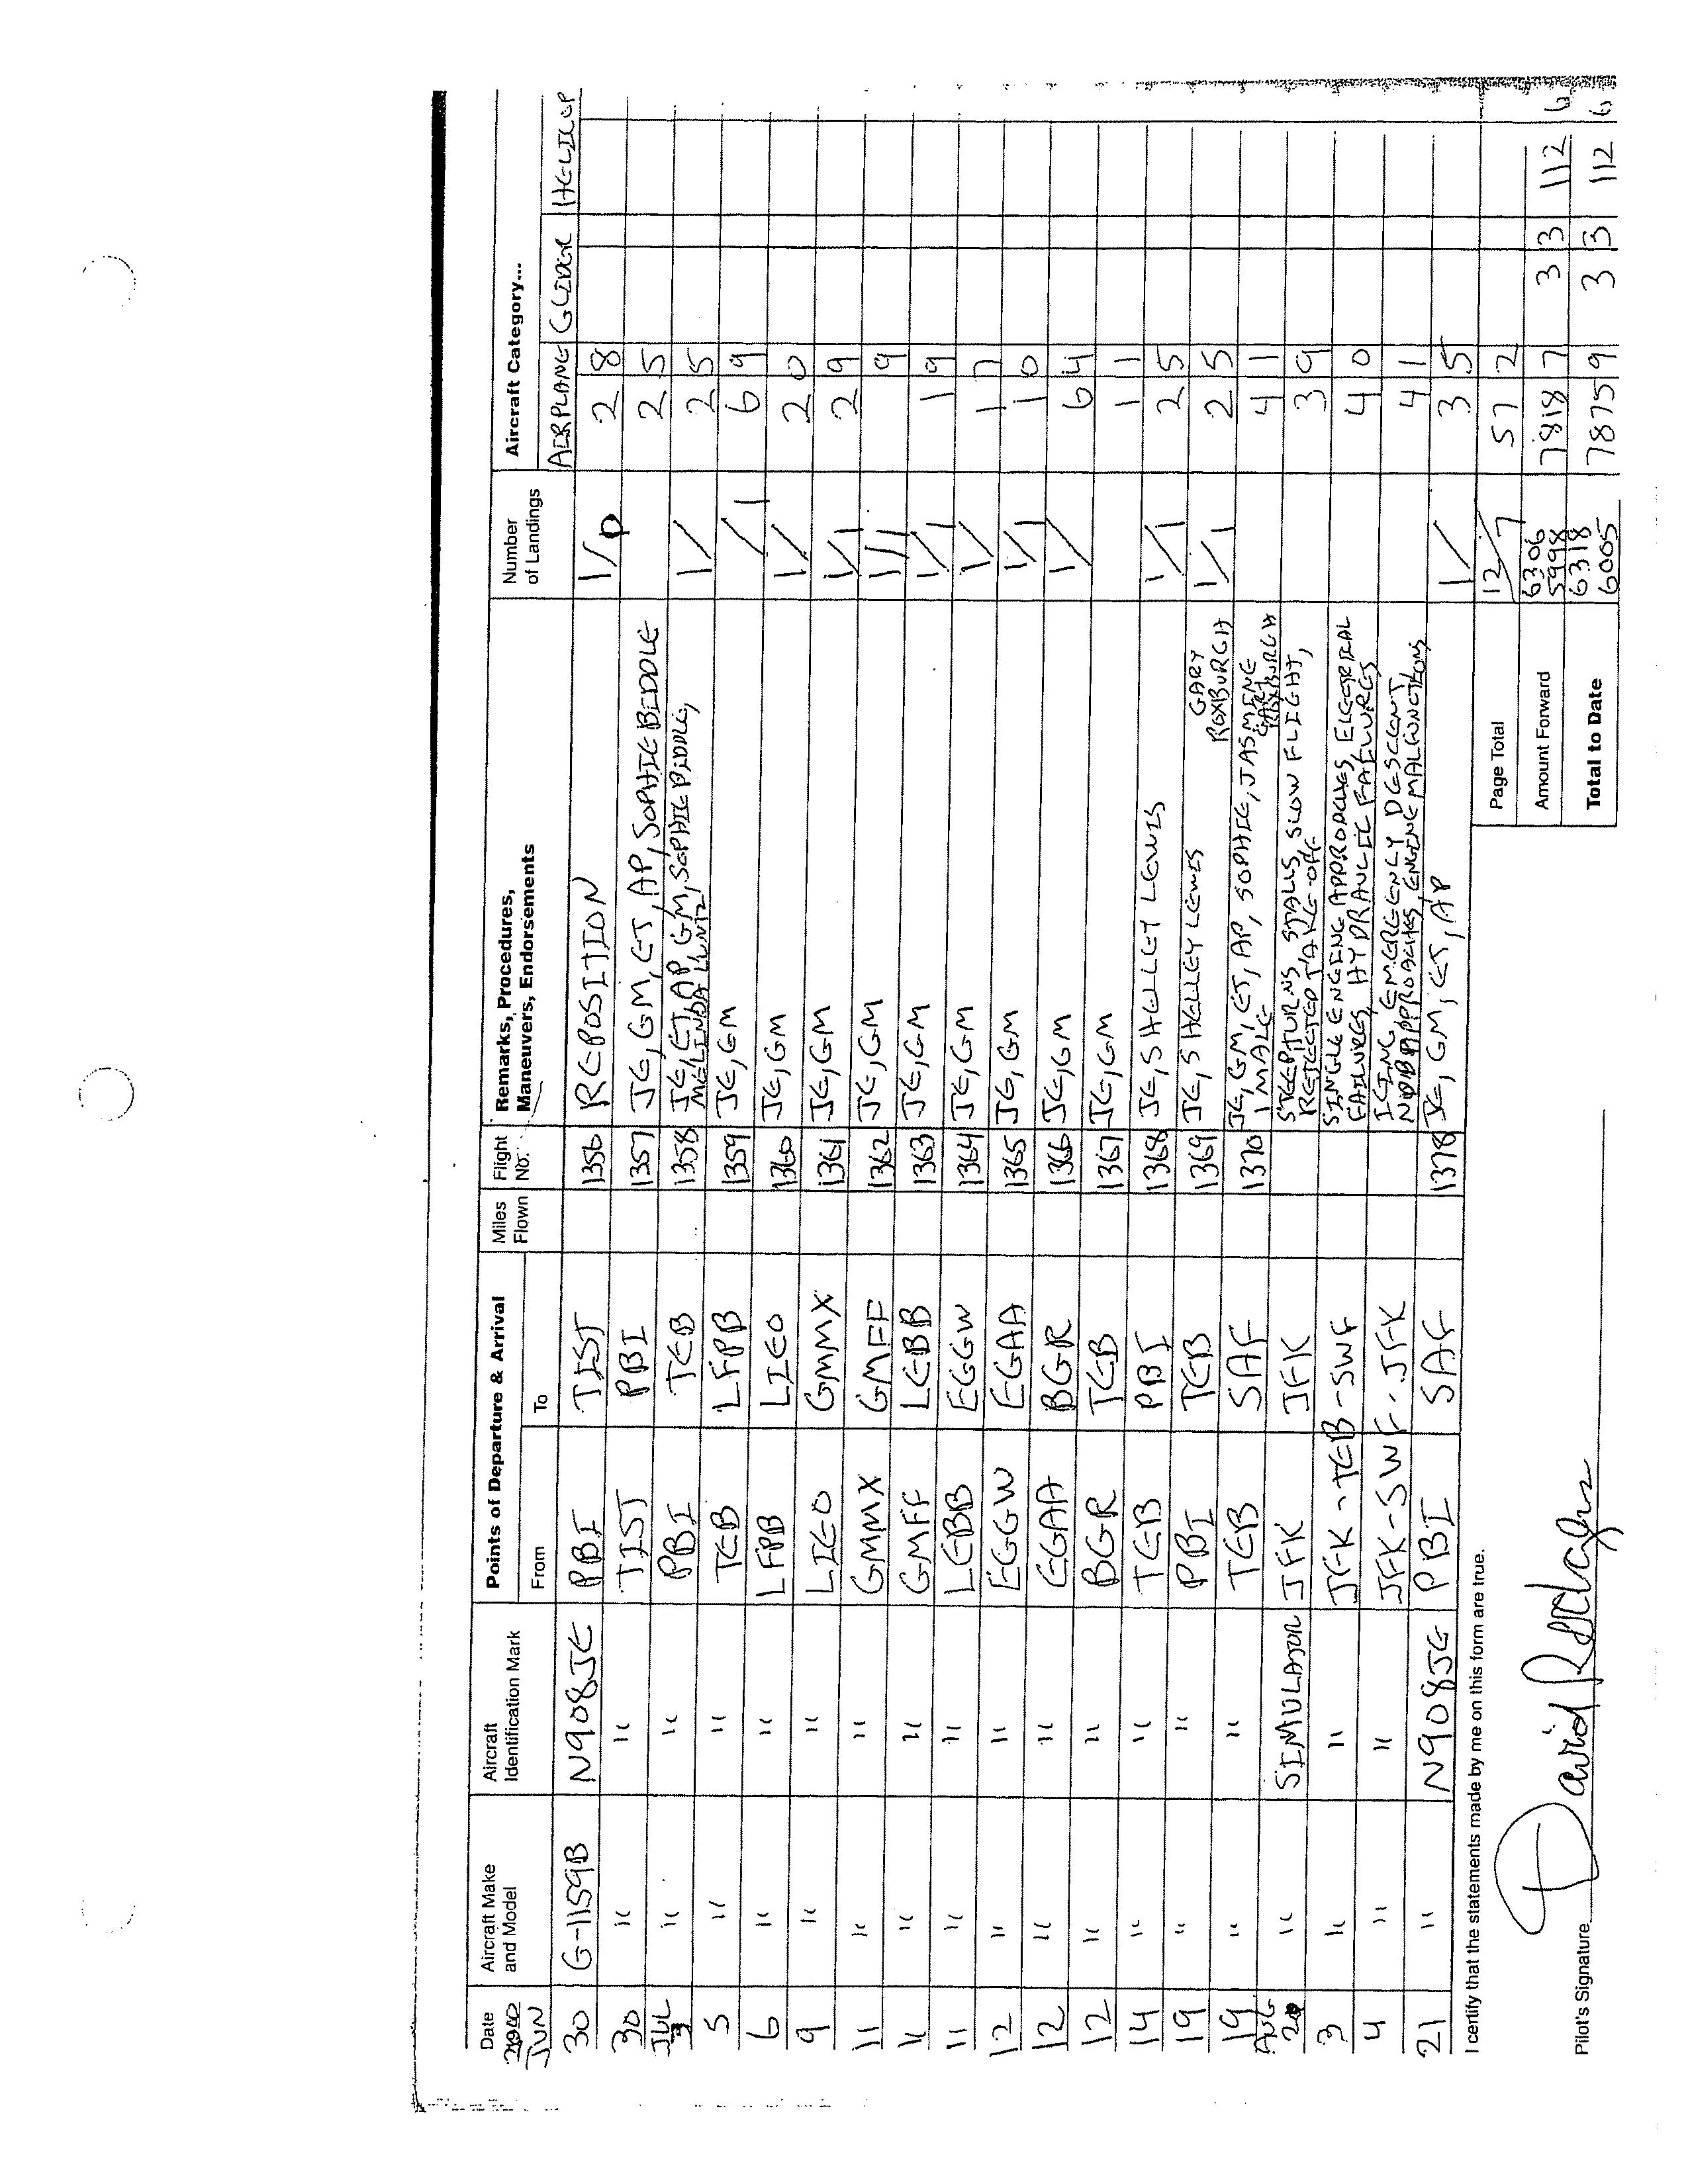 Date Aircraft Make and Model Aircraft Identification Mark Points of Departure & Arrival Miles Flown Flight No. Remarks, Procedures, Maneuvers, Endorsements Number of Landings Aircraft Category...
JUN From To AIRPLANE GLIDER HELICOP
30 G-1159B N908JE PBI TIST 1356 REPOSITION 1/0 2 8
30 " " TIST PBI 1357 JE, GM, ET, AP, SOPHIE BIDDLE 2 5
JUL 3 " " PBI TEB 1358 JE, ET, AP, GM, SOPHIE BIDDLE, MELINDA LUNTZ 1/ 2 5
5 " " TEB LFPB 1359 JE, GM /1 6 9
6 " " LFPB LIEO 1360 JE, GM 1/ 2 0
9 " " LIEO GMMX 1361 JE, GM 1/1 2 9
11 " " GMMX GMFF 1362 JE, GM 1/1 9
11 " " GMFF LEBB 1363 JE, GM 1/1 1 9
11 " " LEBB EGGW 1364 JE, GM 1/ 1 7
12 " " EGGW EGAA 1365 JE, GM 1/1 1 0
12 " " EGAA BGR 1366 JE, GM 1/ 6 4
12 " " BGR TEB 1367 JE, GM 1 1
14 " " TEB PBI 1368 JE, SHELLEY LEWIS 1/1 2 5
19 " " PBI TEB 1369 JE, SHELLEY LEWIS GARY ROXBURGH 1/1 2 5
19 " " TEB SAF 1370 JE, GM, ET, AP, SOPHIE, JASMINE 1 MALE GARY ROXBURGH 4 1
AUG 2 " SIMULATOR JFK JFK STEEP TURNS, STALLS, SLOW FLIGHT, REJECTED TAKE-OFF 3 9
3 " " JFK-TEB-SWF SINGLE ENGINE APPROACHES, ELECTRICAL FAILURES, HYDRAULIC FAILURES 4 0
4 " " JFK-SWF-JFK ICING, EMERGENCY DESCENT, NDB APPROACHES, ENGINE MALFUNCTIONS 4 1
21 " N908JE PBI SAF 1378 JE, GM, ET, AP 1/ 3 5
I certify that the statements made by me on this form are true.
Page Total 12/7 57 2
Amount Forward 6306 5998 7818 7 3 3 112 6
Total to Date 6318 6005 7875 9 3 3 112 6
Pilot's Signature David Rodgers